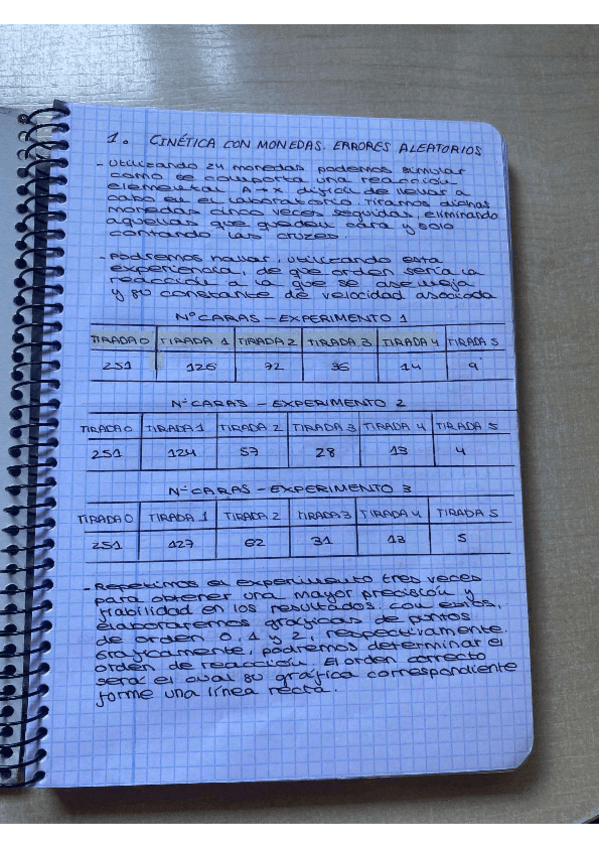 1. CINÉTICA CON MONEDAS. ERRORES ALEATORIOS
- Utilizando 24 monedas podemos simular
como se comporta una reacción
elemental A→X difícil de llevar a
cabo en el laboratorio. Tiramos dichas
monedas cinco veces seguidas, eliminando
aquellas que queden cara y solo
contando las cruzes.
- Podremos hallar, utilizando esta
experiencia, de que orden sería la
reacción a la que se asemeja
y su constante de velocidad asociada
Nº CARAS - EXPERIMENTO 1
TIRADA 0 TIRADA 1 TIRADA 2 TIRADA 3 TIRADA 4 TIRADA 5
251 126 72 36 14 9
Nº CARAS - EXPERIMENTO 2
TIRADA 0 TIRADA 1 TIRADA 2 TIRADA 3 TIRADA 4 TIRADA 5
251 124 57 28 13 4
Nº CARAS - EXPERIMENTO 3
TIRADA 0 TIRADA 1 TIRADA 2 TIRADA 3 TIRADA 4 TIRADA 5
251 127 62 31 13 5
- Repetimos el experimento tres veces
para obtener una mayor precisión y
fiabilidad en los resultados. Con estos,
elaboraremos gráficas de puntos
de orden 0, 1 y 2, respectivamente.
Gráficamente, podremos determinar el
orden de reacción. El orden correcto
será el cual su gráfica correspondiente
forme una línea recta.